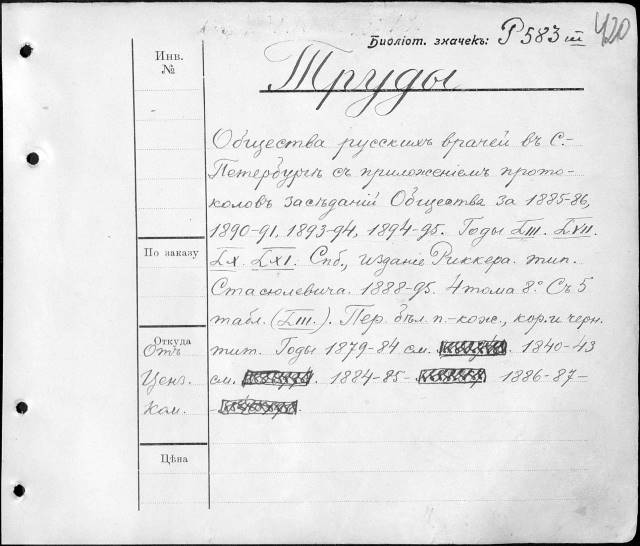 420
Библіот. значекъ: P 583 III
Инв.
№
Труды
Общества русскихъ врачей въ С.-
Петербургѣ съ приложеніемъ прото-
коловъ засѣданій Общества за 1885-86,
1890-91, 1893-94, 1894-95. Годы LIII. LVII.
По заказу
LX. LXI. Спб., изданіе Риккера. тип.
Стасюлевича. 1888-95. 4 тома 8° Съ 5
табл. (LIII.). Пер. бѣл. п.-кож., кор. и черн.
Откуда
Отъ
тит. Годы 1879-84 см. 1840-43
Ценз.
см. 1884-85- 1886-87-
Ком.
Цѣна